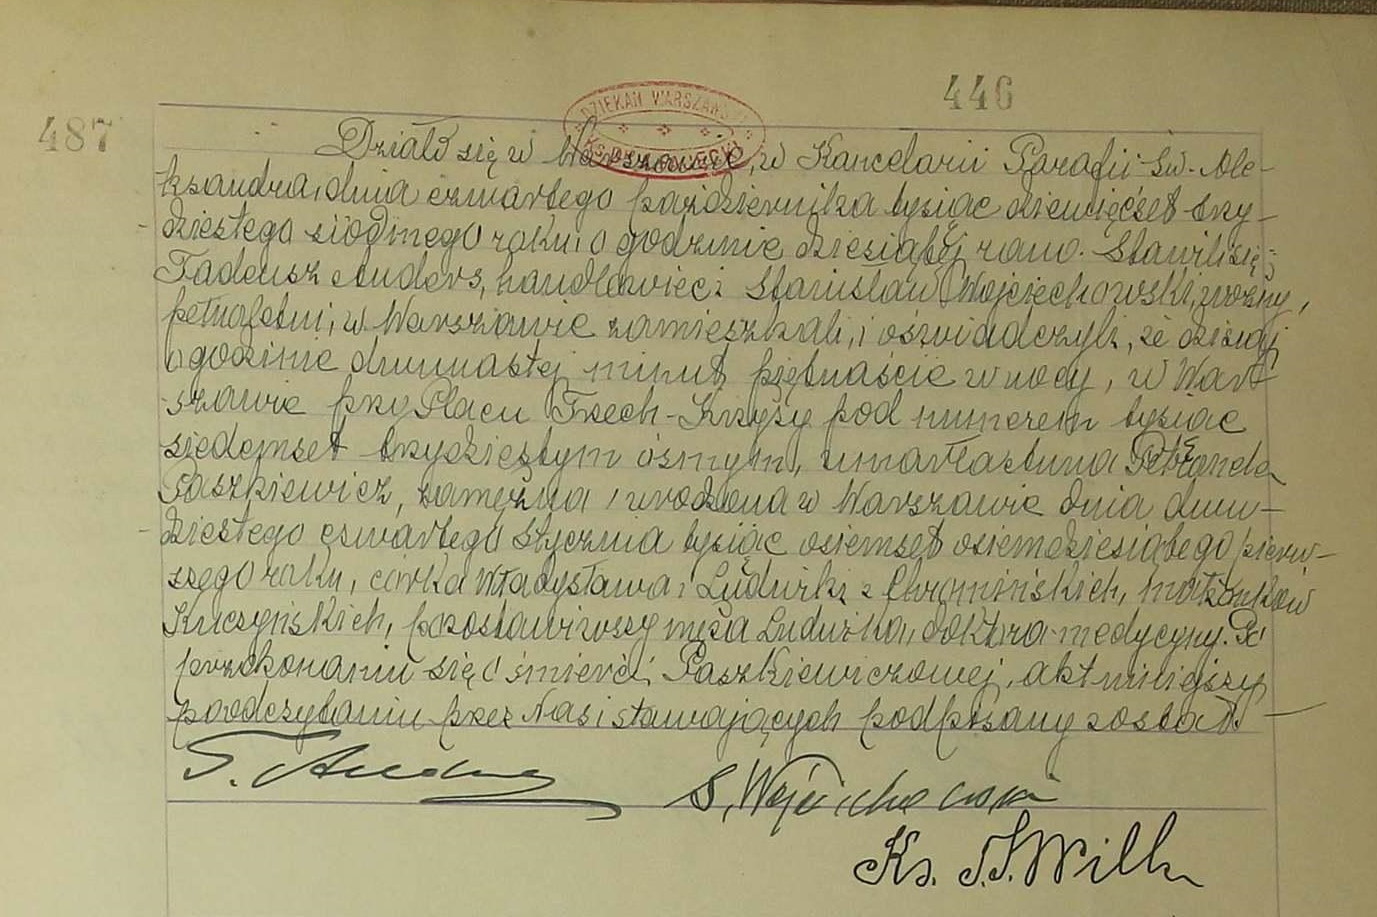 446
487
DZIEKAN WARSZAWSKI
Działo się w Warszawie, w Kancelarii Parafii św. Ale-
ksandra, dnia czwartego października tysiąc dziewięćset trzy-
dziestego siódmego roku, o godzinie dziesiątej rano. Stawili się:
Tadeusz Anders, handlowiec i Stanisław Wojciechowski, woźny,
pełnoletni, w Warszawie zamieszkali, i oświadczyli, że dzisiaj
o godzinie dwunastej minut piętnaście w nocy, w War-
szawie przy Placu Trzech-Krzyży pod numerem tysiąc
siedemset trzydziestym ósmym, umarła Anna
Paszkiewicz, zamężna, urodzona w Warszawie dnia dwu-
dziestego czwartego stycznia tysiąc osiemset osiemdziesiątego pierw-
szego roku, córka Władysława i Ludwiki z Chromińskich, małżonków
Kuczyńskich, pozostawiwszy męża Ludwika, doktora medycyny. Po
przekonaniu się o śmierci Paszkiewiczowej, akt niniejszy
po odczytaniu przez Nas i stawających podpisany został. —
T. Anders
S. Wojciechowski
Ks. J. J. Wilk